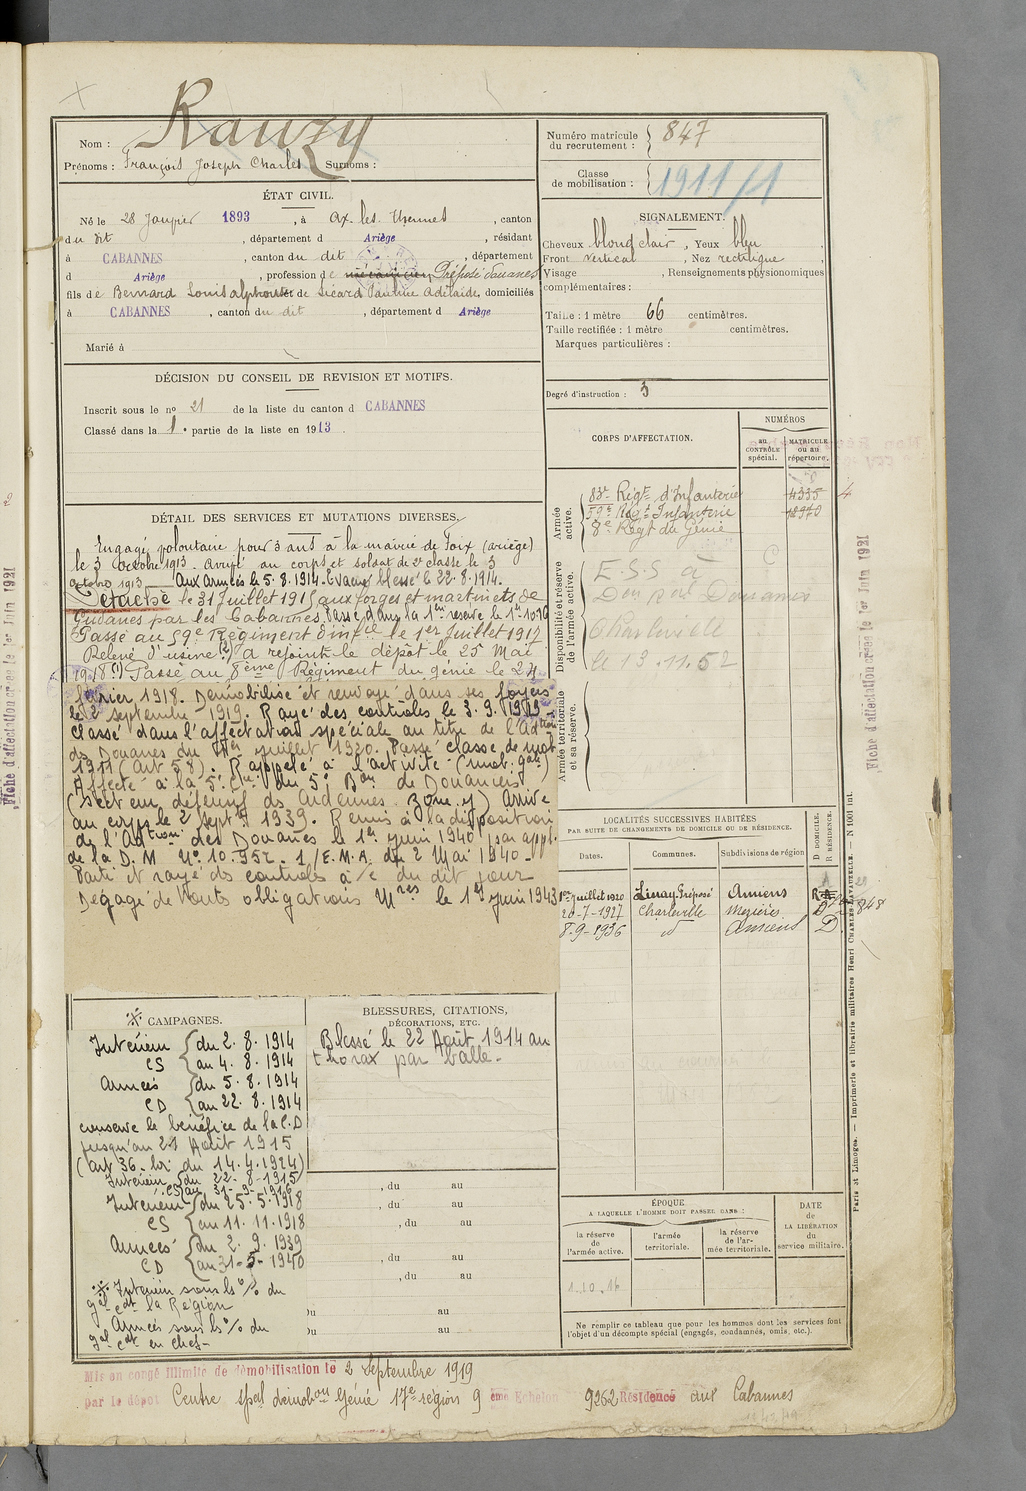 Rauzy
Nom :
Prénoms : François Joseph Charles Surnoms :
ÉTAT CIVIL.
Né le 28 Janvier 1893, à Ax-les-Thermes, canton
du dit, département d Ariège, résidant
à CABANNES, canton du dit, département
d Ariège, profession de mécanicien Préposé douanes
fils de Bernard Louis Alphonse et de Sicard Pauline Adélaïde, domiciliés
à CABANNES, canton du dit, département d Ariège
Marié à
DÉCISION DU CONSEIL DE REVISION ET MOTIFS.
Inscrit sous le n° 21 de la liste du canton d CABANNES
Classé dans la 1e partie de la liste en 1913
DÉTAIL DES SERVICES ET MUTATIONS DIVERSES.
Engagé volontaire pour 3 ans à la mairie de Foix (ariège)
le 3 octobre 1913. Arrivé au corps et soldat de 2e classe le 3
octobre 1913 Aux Armées le 5.8.1914. Evacué blessé le 22.8.1914.
Détaché le 31 Juillet 1915 aux forges et martinets de
Gudanes par les Cabannes. Passé dans la 1ère reserve le 1er 10.16
Passé au 59e Régiment d'infie le 1er Juillet 1917
Relevé d'usine (2) a rejoint le dépôt le 25 Mai
1918 (1) Passé au 8ème Régiment du génie le 24
février 1918. Démobilisé et renvoyé dans ses foyers
le 2 septembre 1919. Rayé des contrôles le 3.9.1919.
Classé dans l'affectation spéciale au titre de l'Adtion
des Douanes du 1er Juillet 1920. Passé classe de mob
1911 (art 58). Rappelé à l'activité (mob. gale)
Affecté à la 5e Cie du 5e Bon de Douaniers
(Secteur défensif des Ardennes. Zone y) Arrivé
au corps le 2 Septe 1939. Remis à la disposition
de l'Adtion des Douanes le 1er juin 1940 par appl.
de la D.M No 10.952. 1/E.M.A. du 2 Mai 1940.
Parti et rayé des contrôles à/c du dit jour
Dégagé de toutes obligations Mres le 1er juin 1943
CAMPAGNES.
Intérieur du 2.8.1914
CS au 4.8.1914
Armées du 5.8.1914
CD au 22.8.1914
conserve le bénéfice de la C.D
jusqu'au 21 Août 1915
(art 36 - loi du 14.4.1924)
Intérieur du 22-8-1915
Intérieur du 25.5.1918
CS au 11.11.1918
Armées du 2.9.1939
CD au 31-5-1940
Intérieur sous ls % du
gal cdt la Région
Armées sous ls % du
gal cdt en chef-
BLESSURES, CITATIONS,
DÉCORATIONS, ETC.
Blessé le 22 Août 1914 au
thorax par balle.
, du au
, du au
, du au
, du au
, du au
Du au
Du au
Numéro matricule du recrutement : 847
Classe de mobilisation : 1911/1
SIGNALEMENT.
Cheveux blond clair, Yeux bleu,
Front vertical, Nez rectiligne,
Visage , Renseignements physionomiques
complémentaires :
Taille : 1 mètre 66 centimètres.
Taille rectifiée : 1 mètre centimètres.
Marques particulières :
Degré d'instruction : 3
CORPS D'AFFECTATION.
NUMÉROS
au CONTRÔLE spécial.
MATRICULE ou au répertoire.
Armée active.
83e Régt d'Infanterie 4335
59e Régt Infanterie
8e Régt du Génie
Disponibilité et réserve de l'armée active.
E.S.S à
Douanes
Charleville
le 13.11.52
Armée territoriale et sa réserve.
LOCALITÉS SUCCESSIVES HABITÉES
PAR SUITE DE CHANGEMENTS DE DOMICILE OU DE RÉSIDENCE.
Dates. Communes. Subdivisions de région D DOMICILE. R RÉSIDENCE.
1er Juillet 1920 Préposé Amiens R
20-7-1927 Charleville Mézières D
8-9-1936 id Amiens D
ÉPOQUE
A LAQUELLE L'HOMME DOIT PASSER DANS :
la réserve de l'armée active.
l'armée territoriale.
la réserve de l'armée territoriale.
DATE de LA LIBÉRATION du service militaire.
1.10.16
Ne remplir ce tableau que pour les hommes dont les services font
l'objet d'un décompte spécial (engagés, condamnés, omis, etc.).
Mis en congé illimité de démobilisation le 2 Septembre 1919
par le dépôt Centre spal démobon Génie 17e région 9 ème Echelon 9262 Résidence aux Cabannes
Fiche d'affectation créée le 1er Juin 1921
Fiche d'affectation créée le 1er Juin 1921
Paris et Limoges. — Imprimerie et librairie militaires Henri CHARLES-LAVAUZELLE. — N 1001 int.